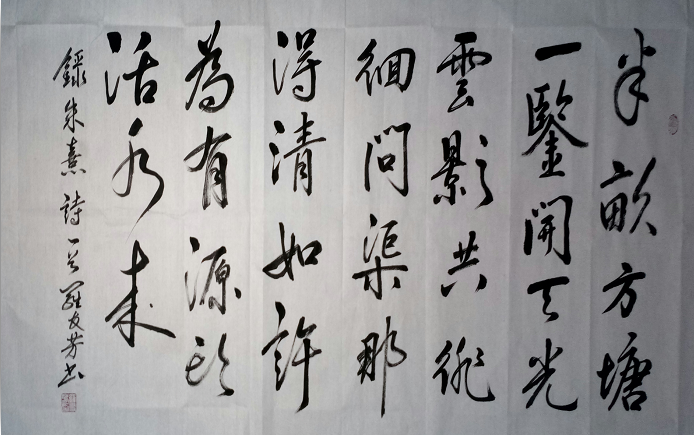 半畝方塘
一鑒開天光
雲影共徘
徊問渠那
得清如許
為有源頭
活水來
錄朱熹詩一首羅友芳書